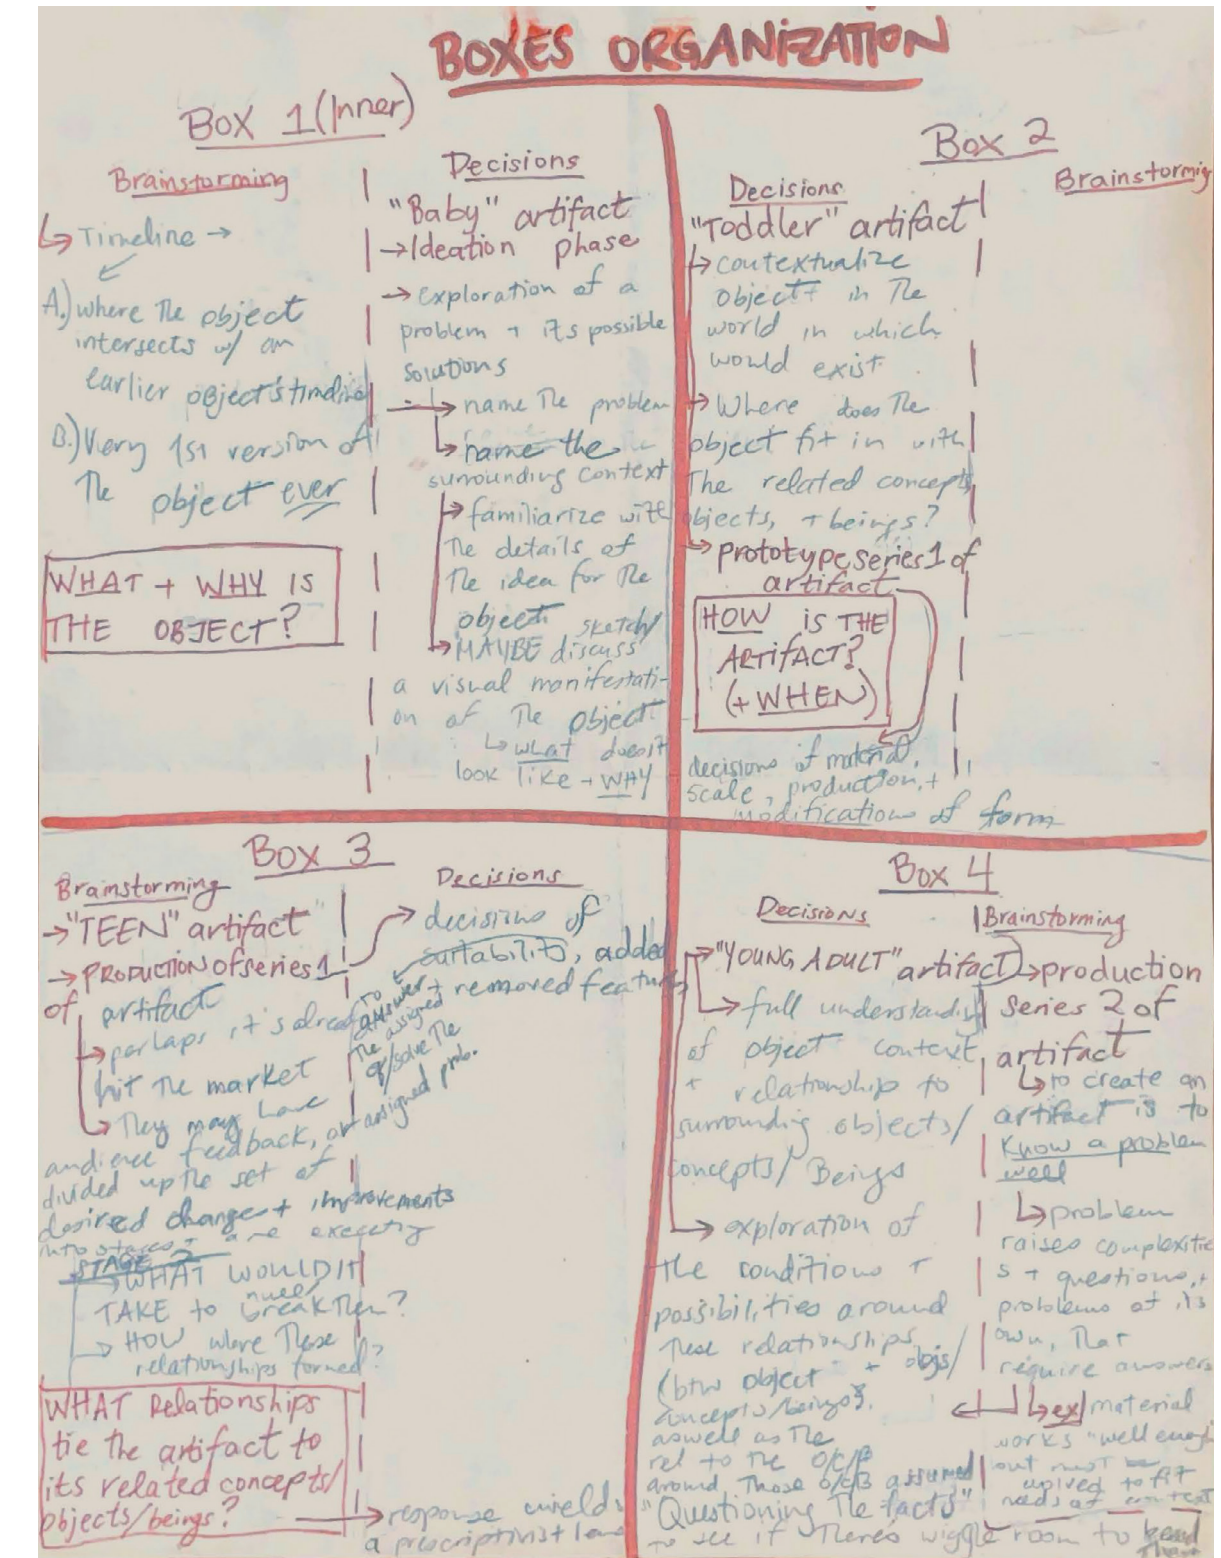 BOXES ORGANIZATION
Box 1 (Inner)
Brainstorming
↳ Timeline →
A.) where the object
intersects w/ an
earlier object's timeline
B.) Very 1st version of
the object ever
WHAT + WHY IS
THE OBJECT?
Decisions
"Baby" artifact
→ Ideation phase
→ exploration of a
problem + its possible
solutions
→ name the problem
↳ name the
surrounding context
→ familiarize with
the details of
the idea for the
object sketch/
→ MAYBE discuss
a visual manifestati-
on of the object
↳ what does it
look like + WHY
Box 2
Decisions
"Toddler" artifact
→ contextualize
object in the
world in which
would exist
→ Where does the
object fit in with
the related concepts
objects, + beings?
→ prototype, series 1 of
artifact
HOW is THE
ARTifACT?
(+ WHEN)
decisions of material,
scale, production, +
modifications of form
Brainstormig
Box 3
Brainstorming
→ "TEEN" artifact
→ PRODUCTION of series 1
of artifact
→ perhaps, it's already
hit the market
↳ They may have
audience feedback,
divided up the set of
desired changes + improvements
into stages + are executing
STAGE 2
WHAT WOULD IT
TAKE to break them?
→ HOW where these
relationships formed?
WHAT Relationships
tie the artifact to
its related concepts/
objects/beings?
Decisions
→ decisions of
suitability, added
+ removed features
to
answer
the assigned
q/solve the
assigned prob.
→ response wields
a prescriptivist
Box 4
Decisions
"YOUNG ADULT" artifact
↳ full understandi
of object context,
+ relationship to
surrounding objects/
concepts/Beings
→ exploration of
the conditions +
possibilities around
these relationships
(btw object + objs/
concepts/beings),
as well as the
rel to the o/c/B
around those o/c/B assumed
"Questioning the facts"
to see if there's wiggle room to bend
Brainstorming
→ production
series 2 of
artifact
↳ to create an
artifact is to
Know a problem
well
↳ problem
raises complexitie
s + questions, +
problems of its
own, that
require answers
↳ ex/ material
works "well enough
but must be
to fit
needs of context